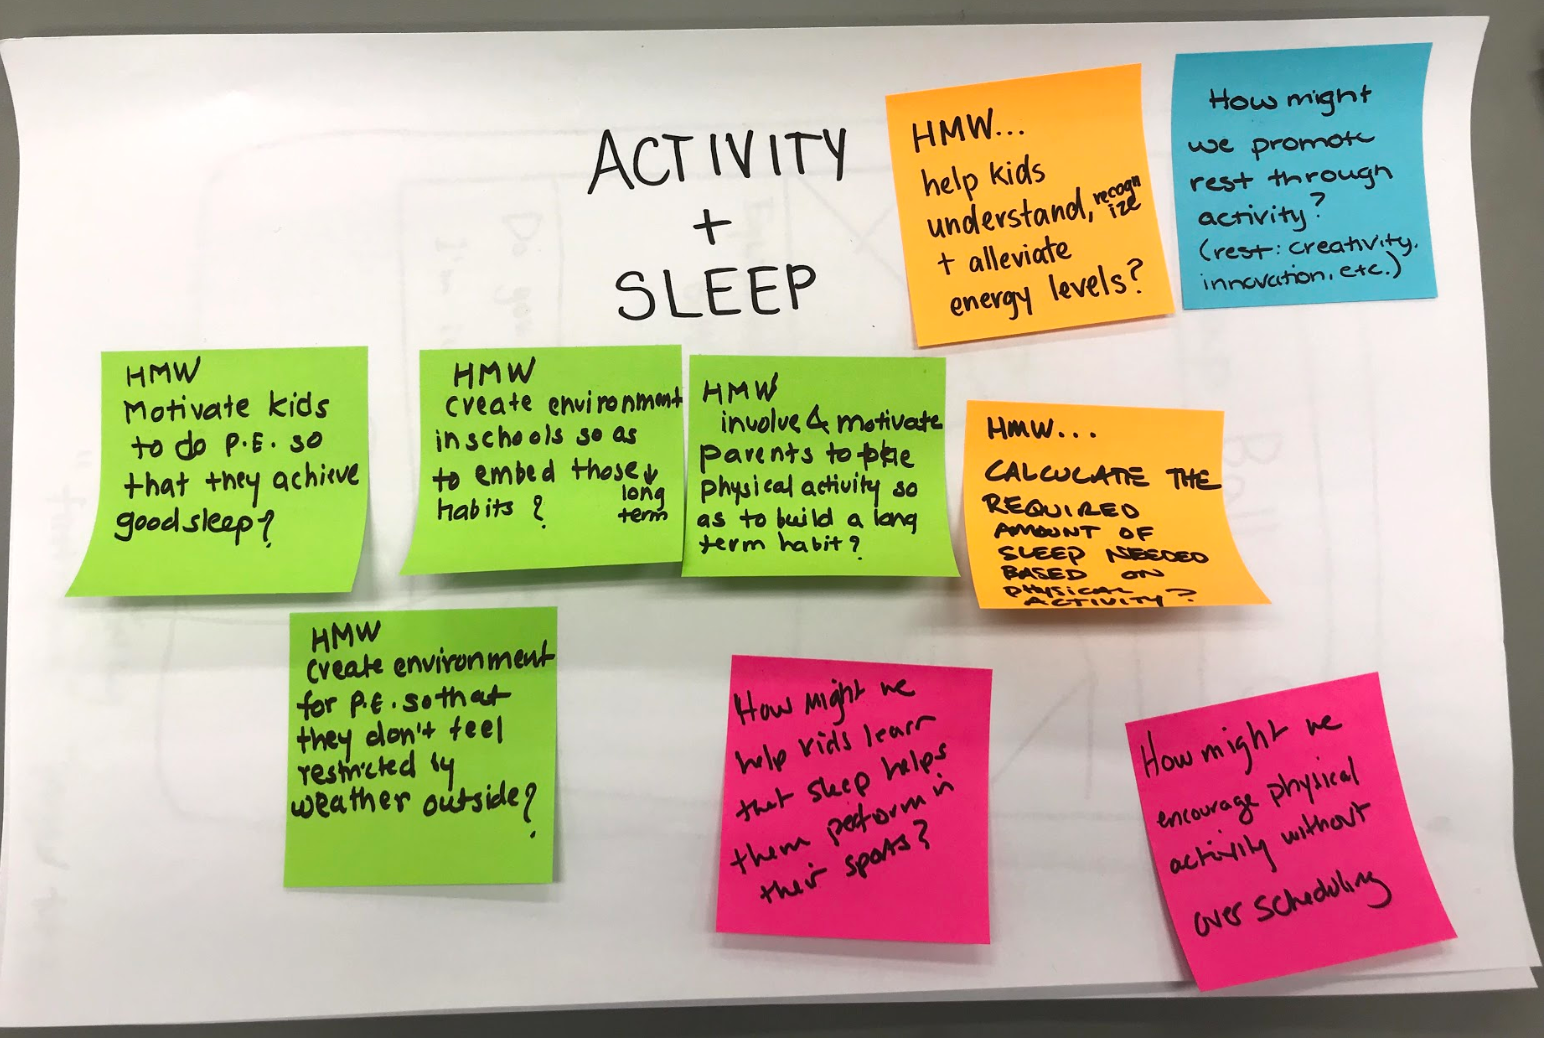 ACTIVITY
+
SLEEP
HMW...
help kids
understand, recogn
ize
+ alleviate
energy levels?
How might
we promote
rest through
activity?
(rest: creativity,
innovation, etc.)
HMW
Motivate kids
to do P.E. so
that they achieve
good sleep?
HMW
create environment
in schools so as
to embed those
long
term
habits?
HMW
involve & motivate
parents to
physical activity so
as to build a long
term habit?
HMW...
CALCULATE THE
REQUIRED
AMOUNT OF
SLEEP NEEDED
BASED ON
PHYSICAL
ACTIVITY?
HMW
create environment
for P.E. so that
they don't feel
restricted by
weather outside?
How might we
help kids learn
that sleep helps
them perform in
their sports?
How might we
encourage physical
activity without
over scheduling